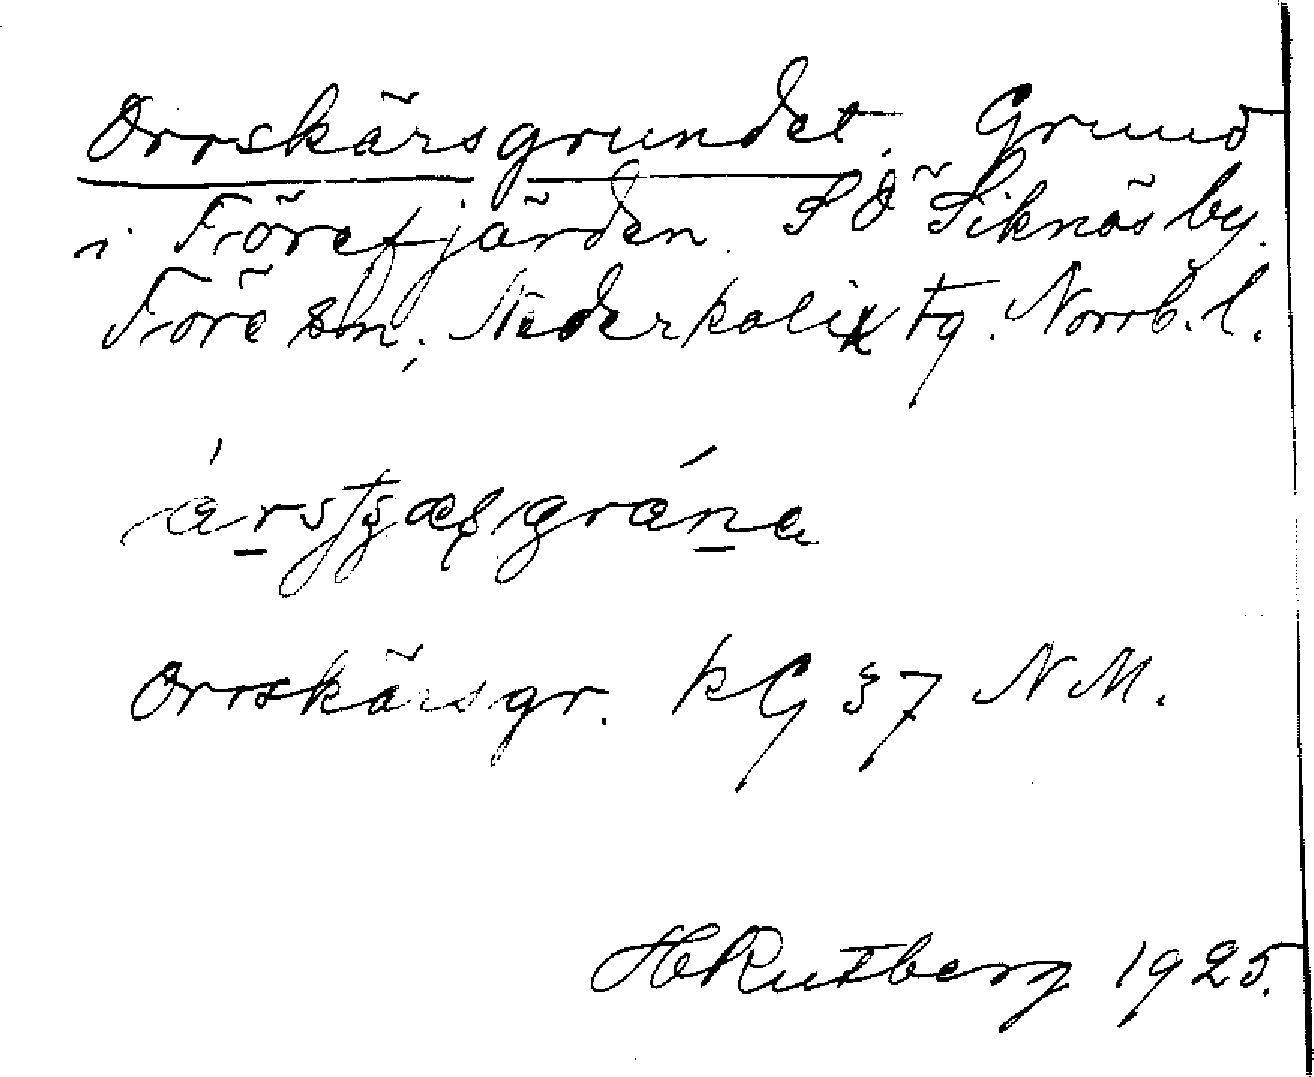 Orrskärsgrundet. Grund
i Förefjärden. S Ö Siknäs by.
Töre sn, Nederkalix tg. Norrb. l.
Orrskärsgr. kG 37 NM.
H Rutberg 1925.